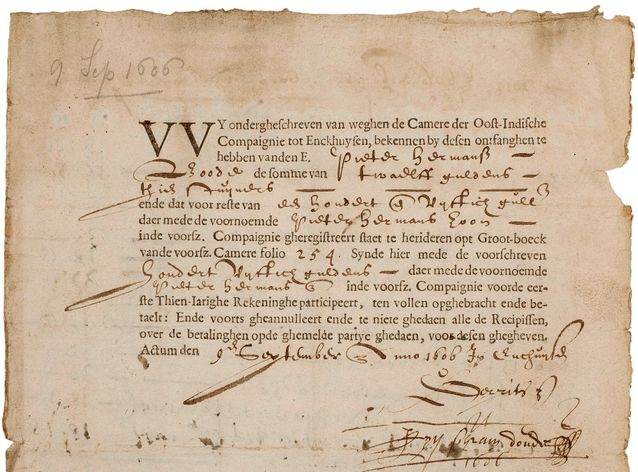 9 Sep 1606
VVY ondergheschreven van weghen de Camere der Oost-Indische
Compaignie tot Enckhuysen, bekennen by desen ontfanghen te
hebben vanden E. Pieter Hermansz
de somme van twaelff guldens
ende dat voor reste van hondert vyftich gull
daer mede de voornoemde Pieter Hermans zoon
inde voorsz. Compaignie gheregistreert staet te herideren opt Groot-boeck
vande voorsz. Camere folio 254. Synde hier mede de voorschreven
hondert vyftich guldens daer mede de voornoemde
Pieter Hermans inde voorsz. Compaignie voorde eer-
ste Thien-Iarighe Rekeninghe participeert, ten vollen opghebracht ende be-
taelt: Ende voorts gheannulleert ende te niete ghedaen alle de Recipissen,
over de betalinghen opde ghemelde partye ghedaen, voor desen ghegheven.
Actum den 9en September Anno 1606
1606